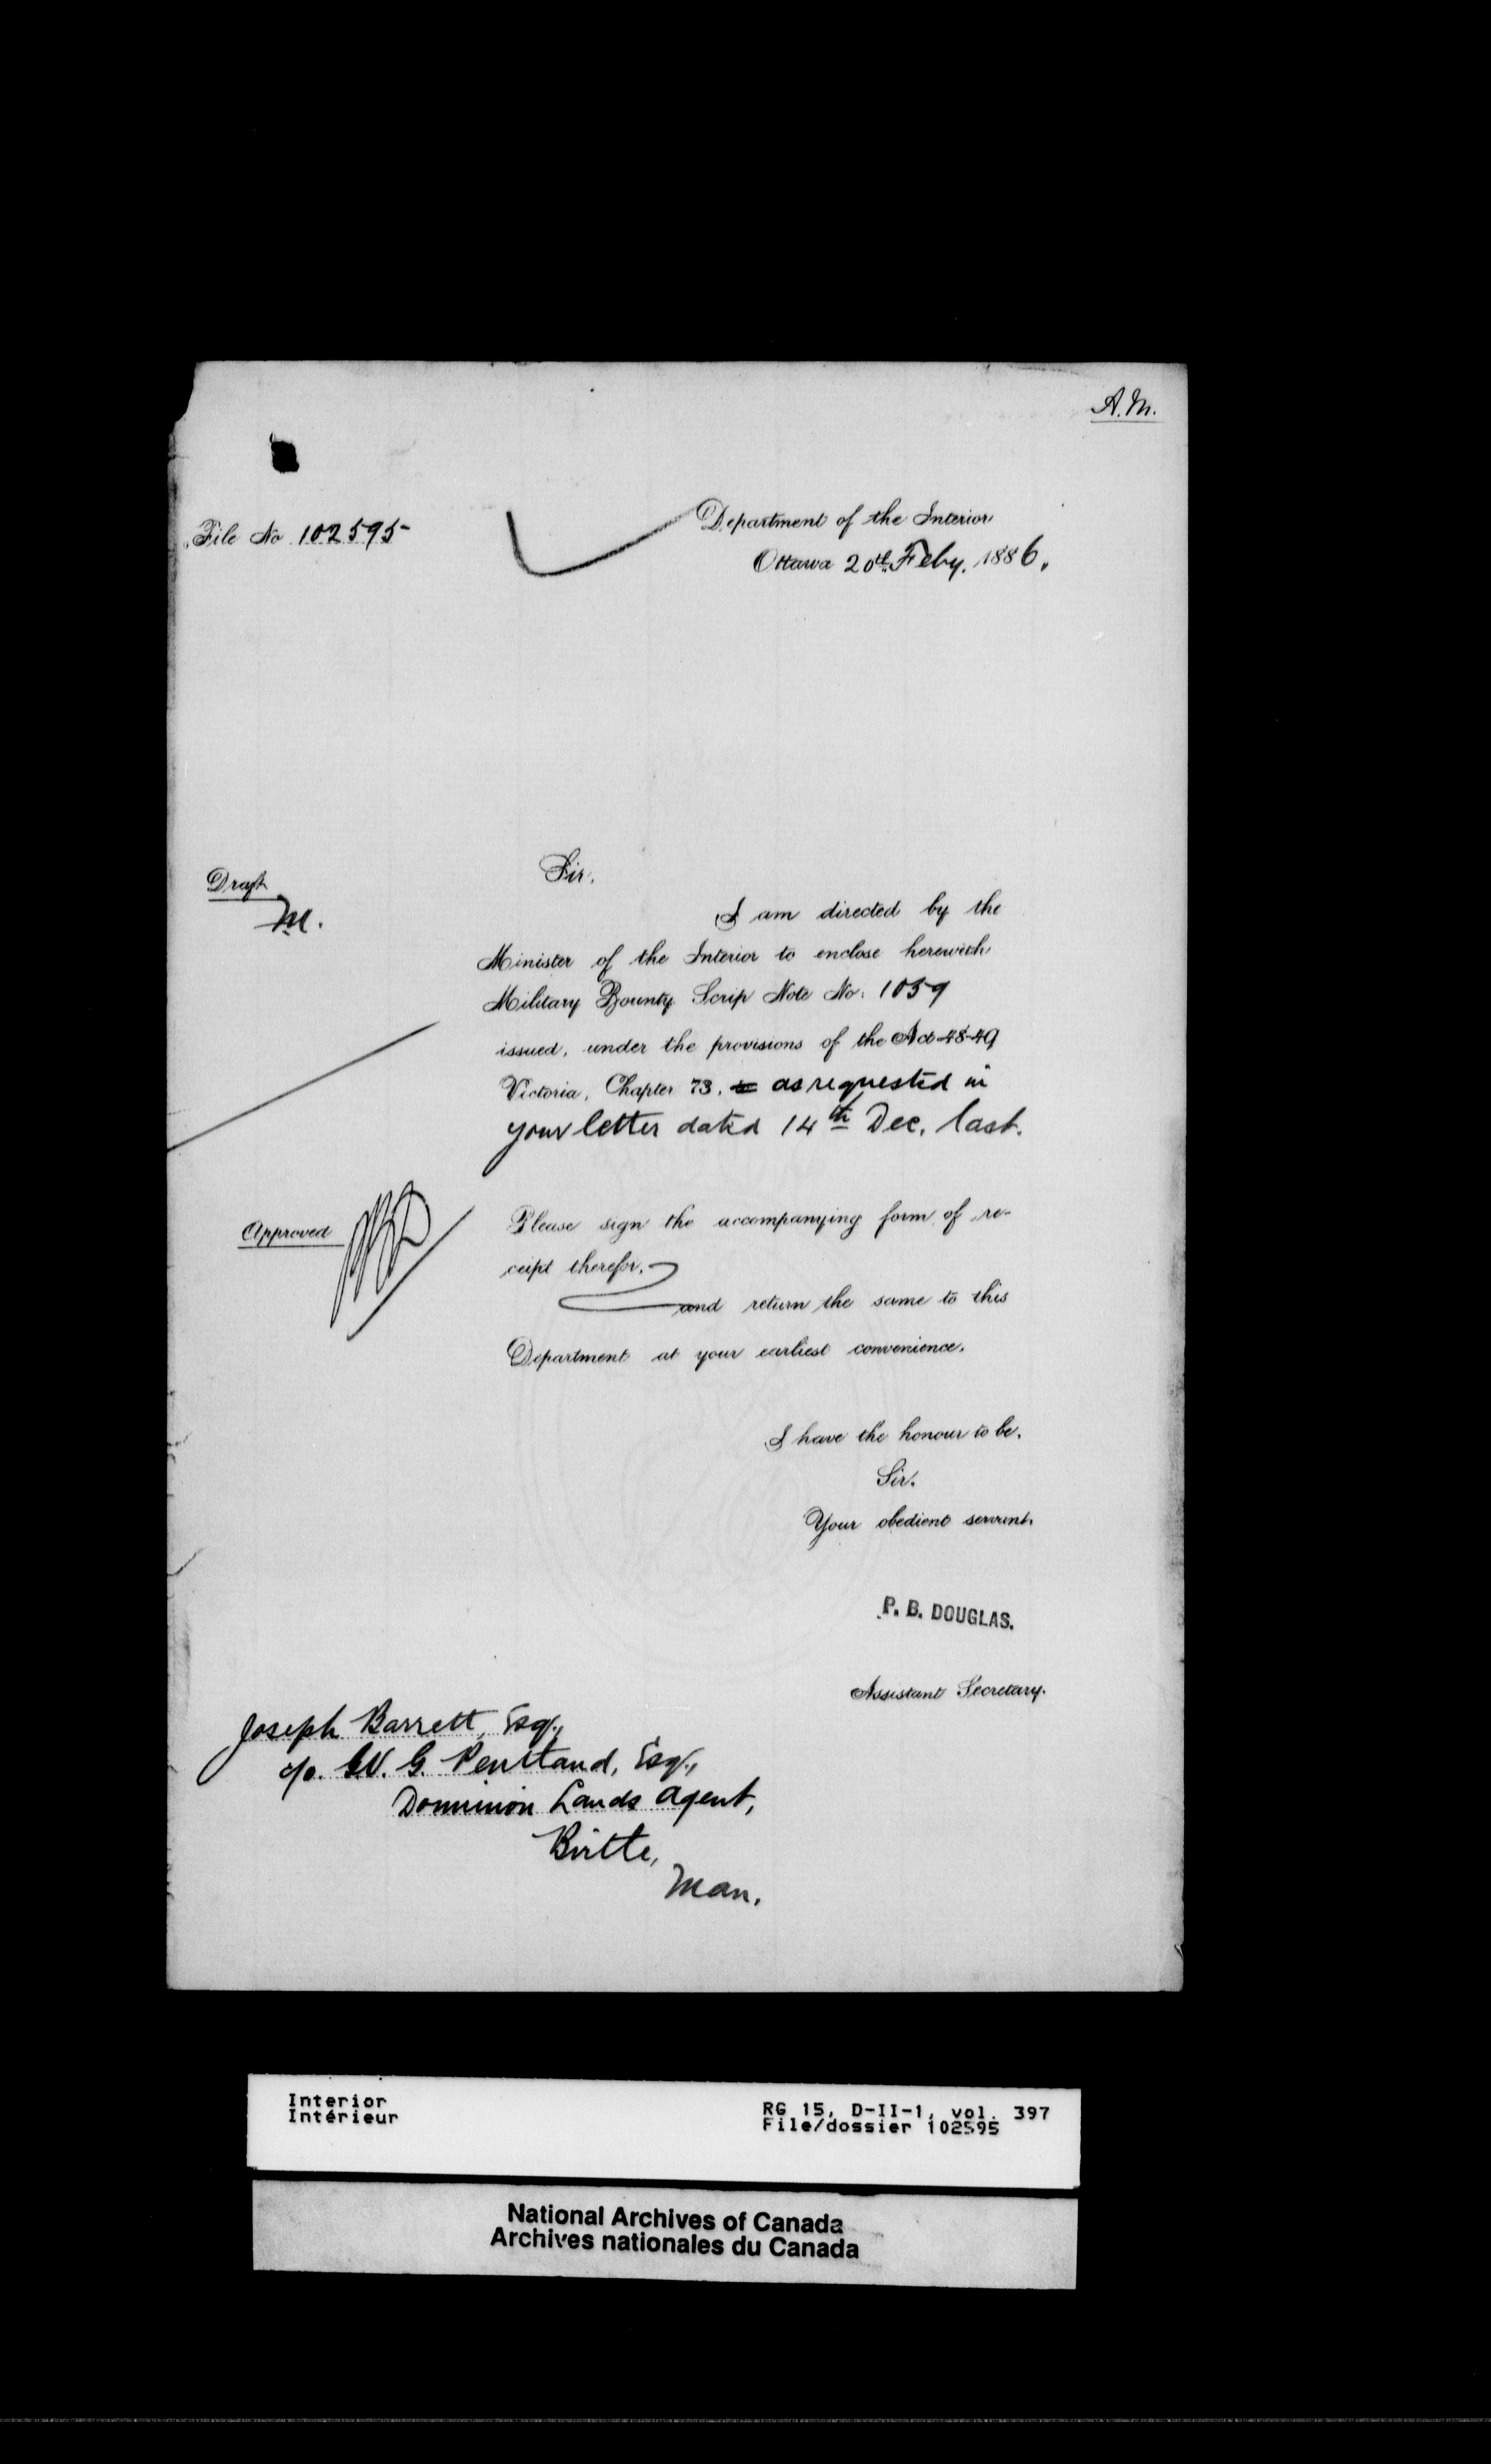 A.M.
File No 102595
Department of the Interior
Ottawa 20th Feby. 1886.
Draft
M.
Sir,
I am directed by the
Minister of the Interior to enclose herewith
Military Bounty Scrip Note No: 1059
issued, under the provisions of the Act 48-49
Victoria, Chapter 73, to as requested in
your letter dated 14th Dec. last.
Approved
Please sign the accompanying form of re-
ceipt therefor,
and return the same to this
Department at your earliest convenience.
I have the honour to be,
Sir,
Your obedient servant,
P. B. DOUGLAS.
Assistant Secretary.
Joseph Barrett, Esq.,
c/o. W. G. Pentland, Esq.,
Dominion Lands Agent,
Birtle,
Man.
Interior
Intérieur
RG 15, D-II-1, vol. 397
File/dossier 102595
National Archives of Canada
Archives nationales du Canada